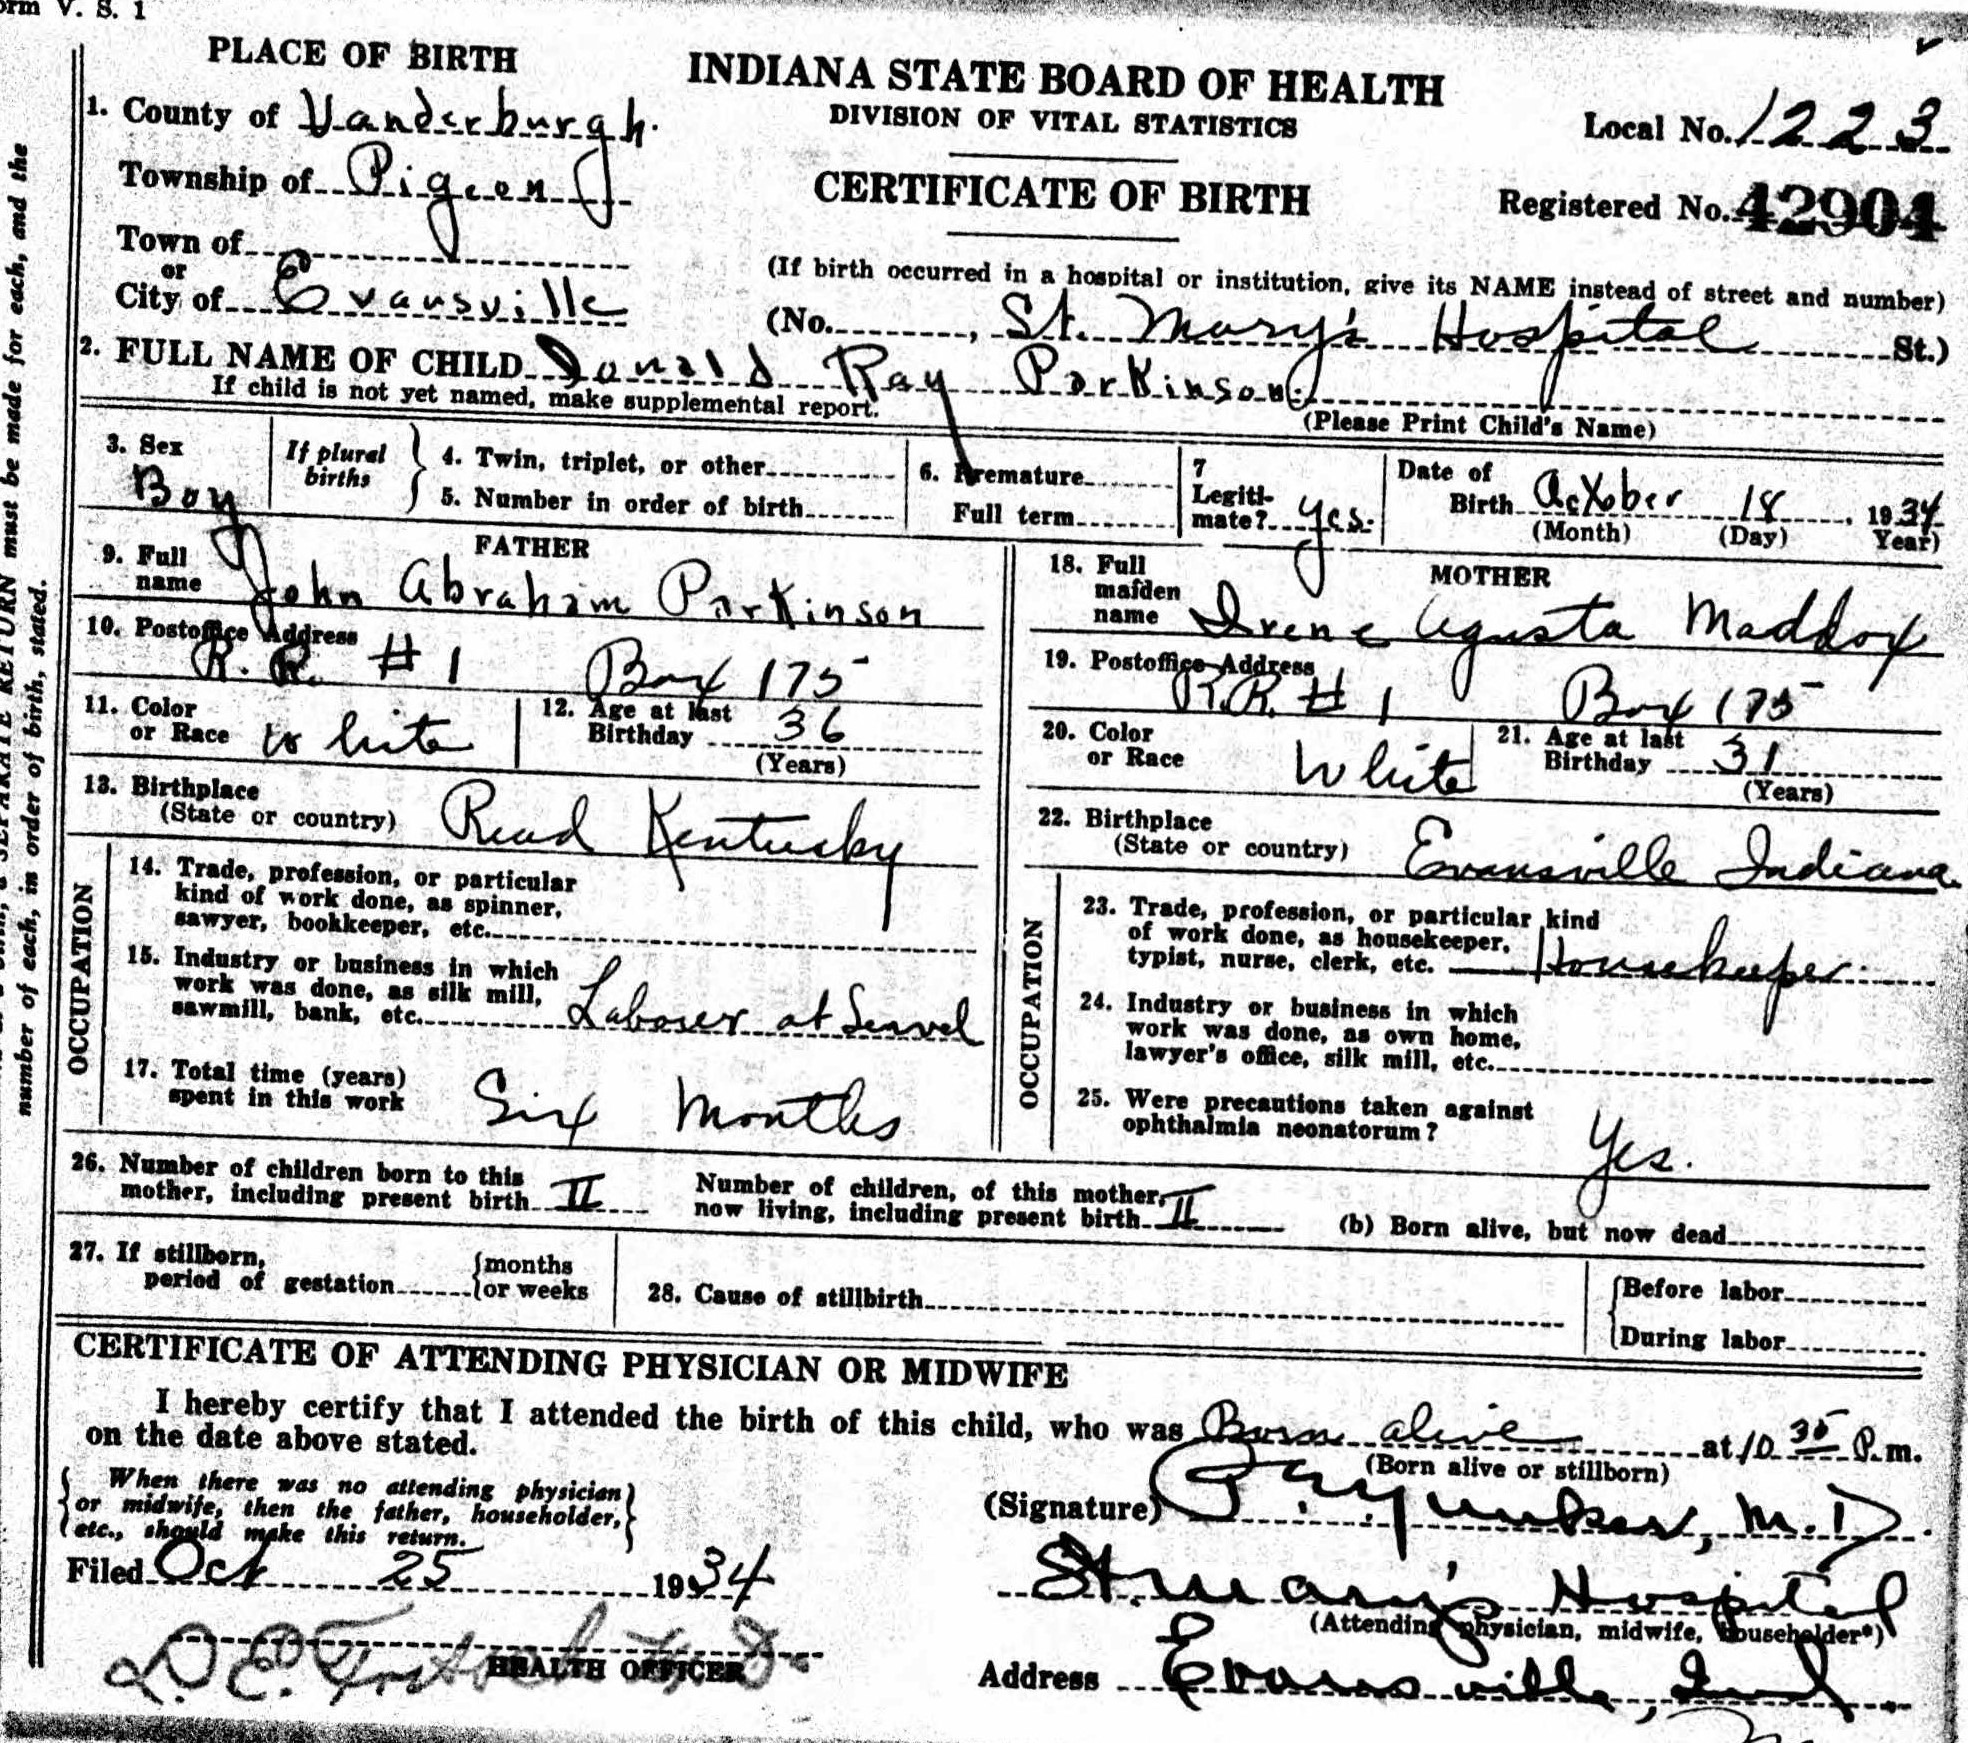 orm V. S. 1
PLACE OF BIRTH
INDIANA STATE BOARD OF HEALTH
DIVISION OF VITAL STATISTICS
CERTIFICATE OF BIRTH
Local No. 1223
Registered No. 42904
1. County of Vanderburgh.
Township of Pigeon
Town of
or
City of Evansville
(If birth occurred in a hospital or institution, give its NAME instead of street and number)
(No. , St. Mary's Hospital St.)
2. FULL NAME OF CHILD Donald Ray Parkinson.
If child is not yet named, make supplemental report.
(Please Print Child's Name)
3. Sex
Boy
If plural births
4. Twin, triplet, or other
5. Number in order of birth
6. Premature
Full term
7 Legiti-
mate? yes.
Date of
Birth October 18, 1934
(Month) (Day) Year)
FATHER
9. Full
name John Abraham Parkinson
10. Postoffice Address
R. R. # 1 Box 175
11. Color
or Race white
12. Age at last
Birthday 36
(Years)
13. Birthplace
(State or country) Kentucky
OCCUPATION
14. Trade, profession, or particular
kind of work done, as spinner,
sawyer, bookkeeper, etc.
15. Industry or business in which
work was done, as silk mill,
sawmill, bank, etc. Laborer at
17. Total time (years)
spent in this work Six Months
MOTHER
18. Full
maiden
name Irene Agusta Maddox
19. Postoffice Address
R.R. # 1 Box 175
20. Color
or Race White
21. Age at last
Birthday 31
(Years)
22. Birthplace
(State or country) Evansville Indiana.
OCCUPATION
23. Trade, profession, or particular kind
of work done, as housekeeper,
typist, nurse, clerk, etc. Housekeeper.
24. Industry or business in which
work was done, as own home,
lawyer's office, silk mill, etc.
25. Were precautions taken against
ophthalmia neonatorum? Yes.
26. Number of children born to this
mother, including present birth II
Number of children, of this mother,
now living, including present birth II
(b) Born alive, but now dead
27. If stillborn,
period of gestation
months
or weeks
28. Cause of stillbirth
Before labor
During labor
CERTIFICATE OF ATTENDING PHYSICIAN OR MIDWIFE
I hereby certify that I attended the birth of this child, who was Born alive at 10 35 P.m.
on the date above stated.
(Born alive or stillborn)
When there was no attending physician
or midwife, then the father, householder,
etc., should make this return.
(Signature) M.D.
St. Mary's Hospital
(Attending physician, midwife, householder*)
Filed Oct 25 1934
HEALTH OFFICER
Address Evansville, Ind.
number of each, in order of birth, stated.
RETURN must be made for each, and the